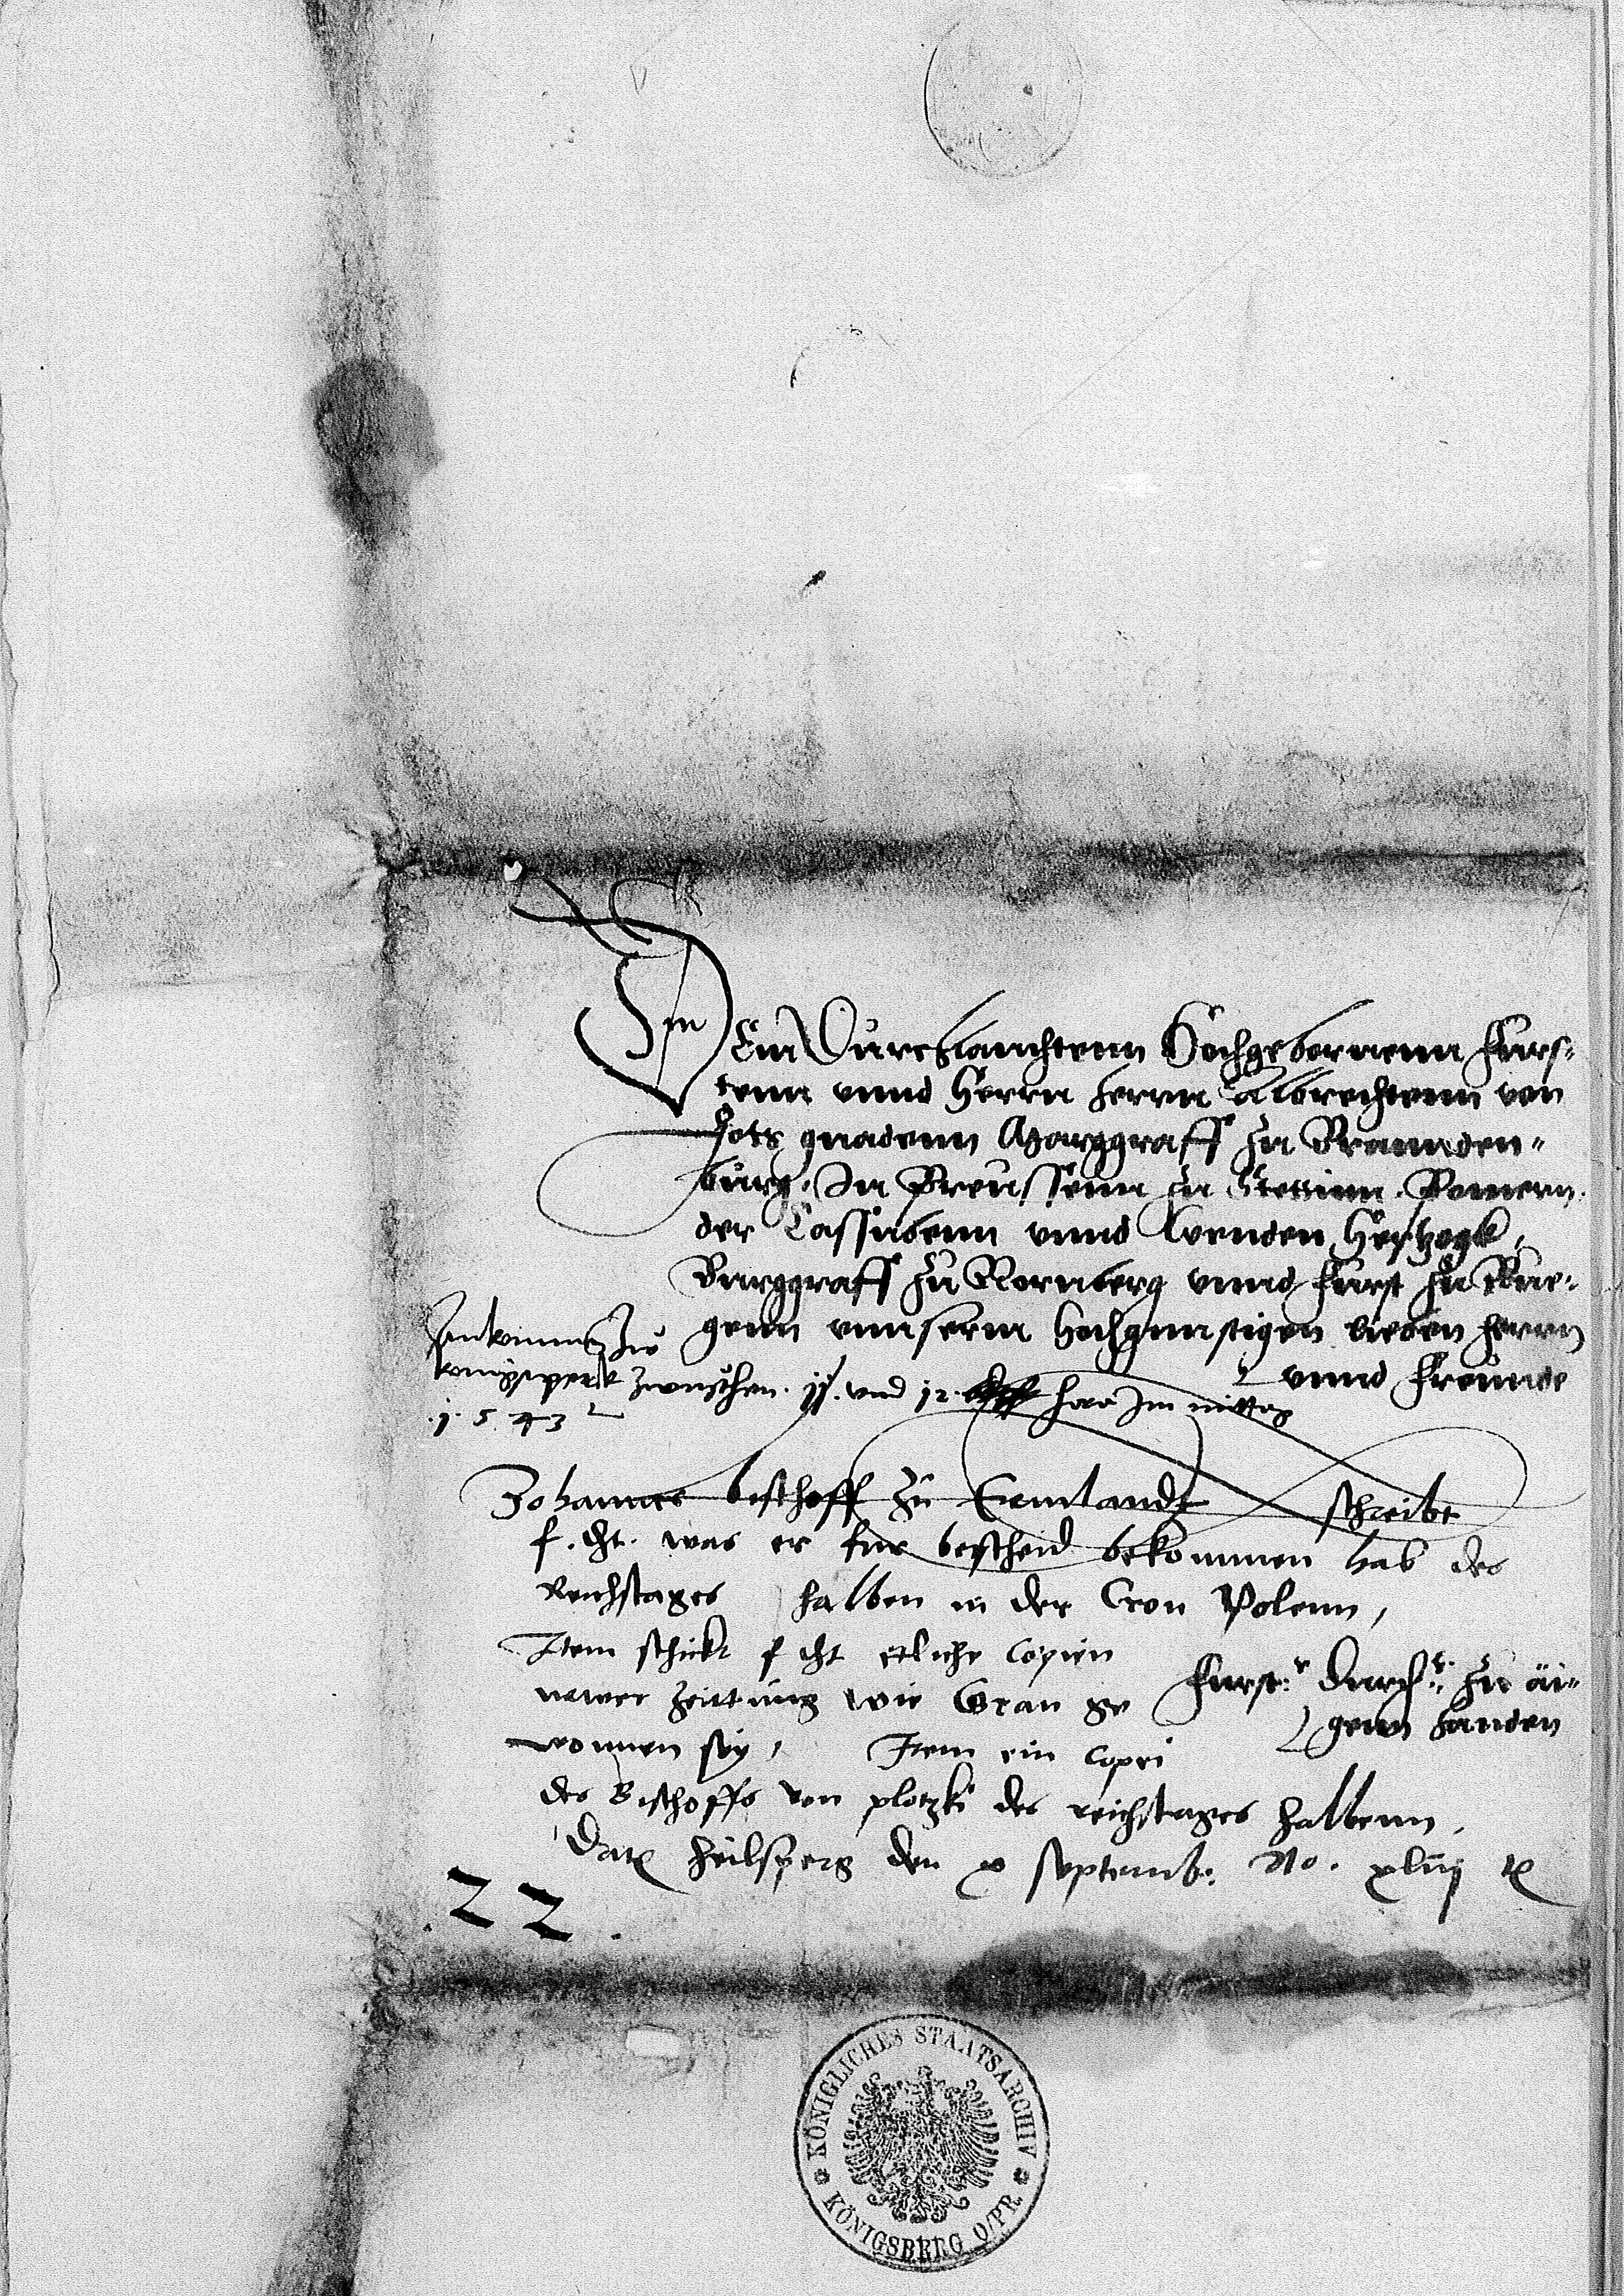 Dem Durchlauchtenn Hochgebornenn Furs-
tenn unnd Herrn herrn Albrechtenn von
Gots gnadenn Marggraff zu Brannden-
burg. Inn Preussenn zu Stettinn. Pomern.
der Cassubenn unnd Wenden Hertzogk,
Burggraff zu Nornberg unnd Furst zu Rue-
genn unnserm hochgunstigen lieben herrn
unnd Freunde
Ankommen Zu
konigsperk zwuschen. 11. und 12. hora Im mittag
.1.5.43
Johannes bischoff zu Ermlandt schreibt
f. dht. was er fur bescheid bekommen hab des
Reichstages halben in der Cron Polenn,
Item schickt f dht etliche Copien
newer zeittung wie Gran ge
wonnen sey, Item ein copei
des Bischoffs von plotzki des reichstages halbenn.
Furst: Durch: zu äi-
genn handen
Dat heilsperg den x septemb: Ao. xliij
.22.
KÖNIGLICHES STAATSARCHIV
KÖNIGSBERG O/PR.